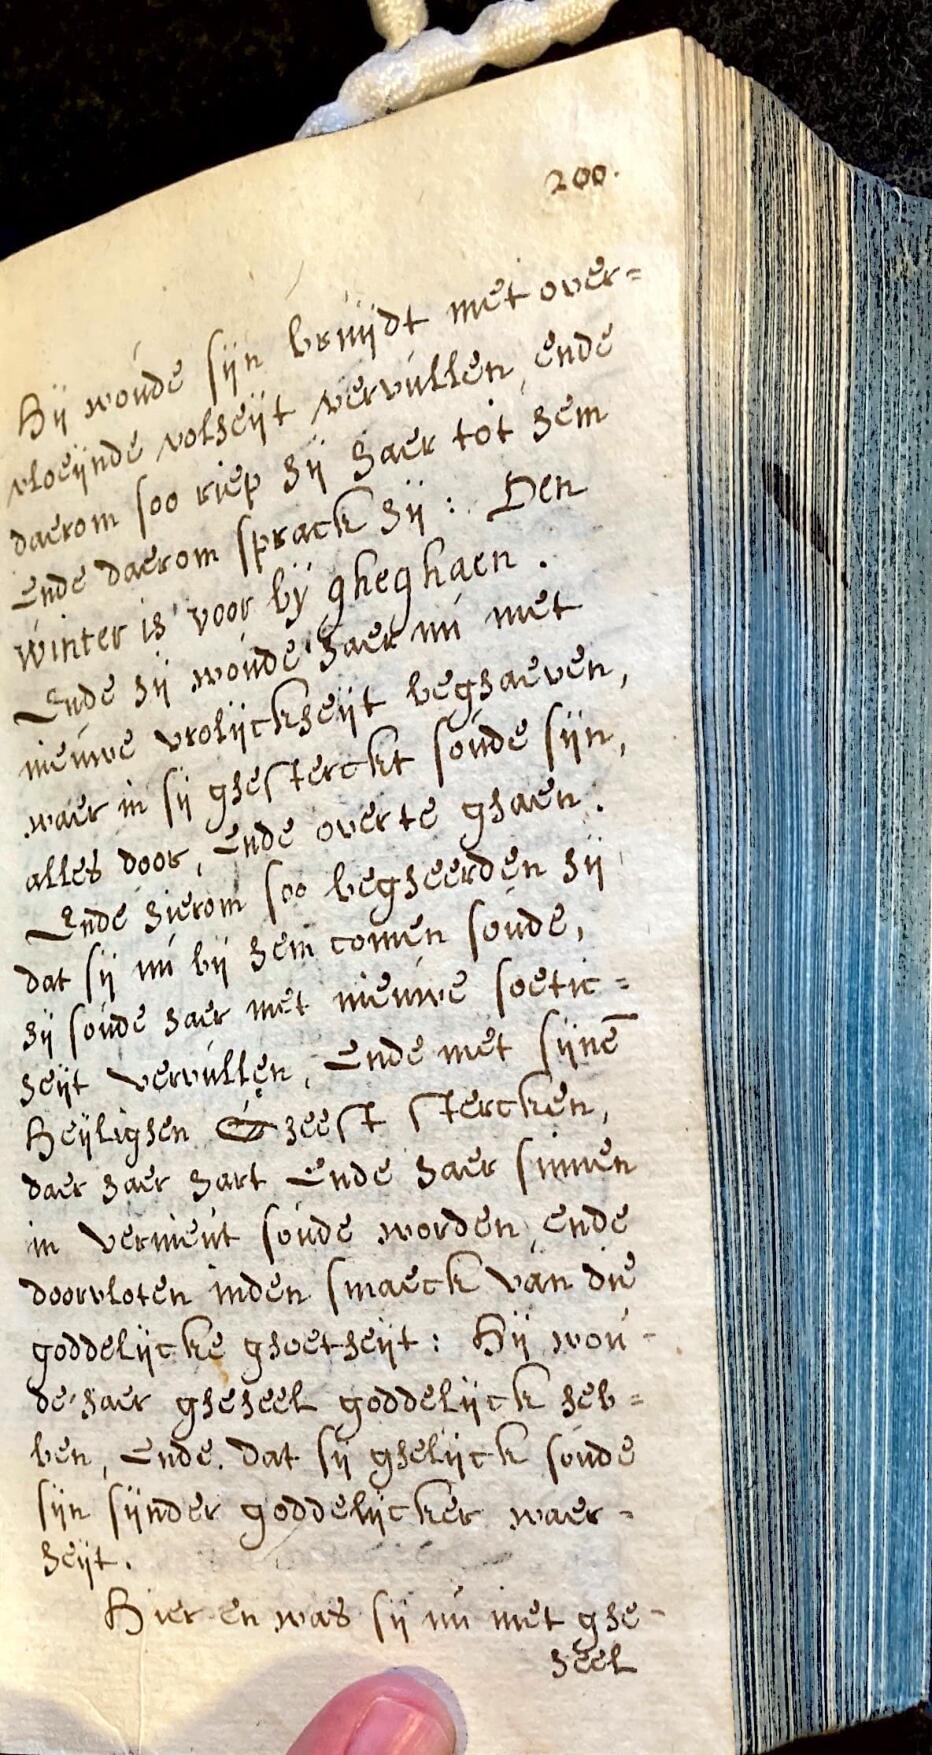 200.
Hij woúde sijn bruijdt met over=
vloeijnde volheijt vervúllen, ende
daerom soo riep hij haer tot hem
Ende daerom sprack hij: Den
winter is voor bij gheghaen.
Ende hij woúde haer nú met
nieuwe vrolijckheijt beghaeven,
waer in sij ghesterckt soúde sijn,
alles door, Ende over te ghaen.
Ende hierom soo begheerden hij
dat sij nú bij hem comen soúde,
hij soúde haer met nieúwe soetic=
heijt vervúllen, Ende met sijnē
Heijlighen Gheest stercken,
daer haer hart Ende haer sinnen
in vernieút soúde worden, ende
doorvloten inden smaeck van die
goddelijcke ghoetheijt: Hij woú-
de haer gheheel goddelijck heb=
ben, Ende dat sij ghelijck soúde
sijn sijnder goddelijcker waer=
heijt.
Hier en was sij nú niet ghe-
heel